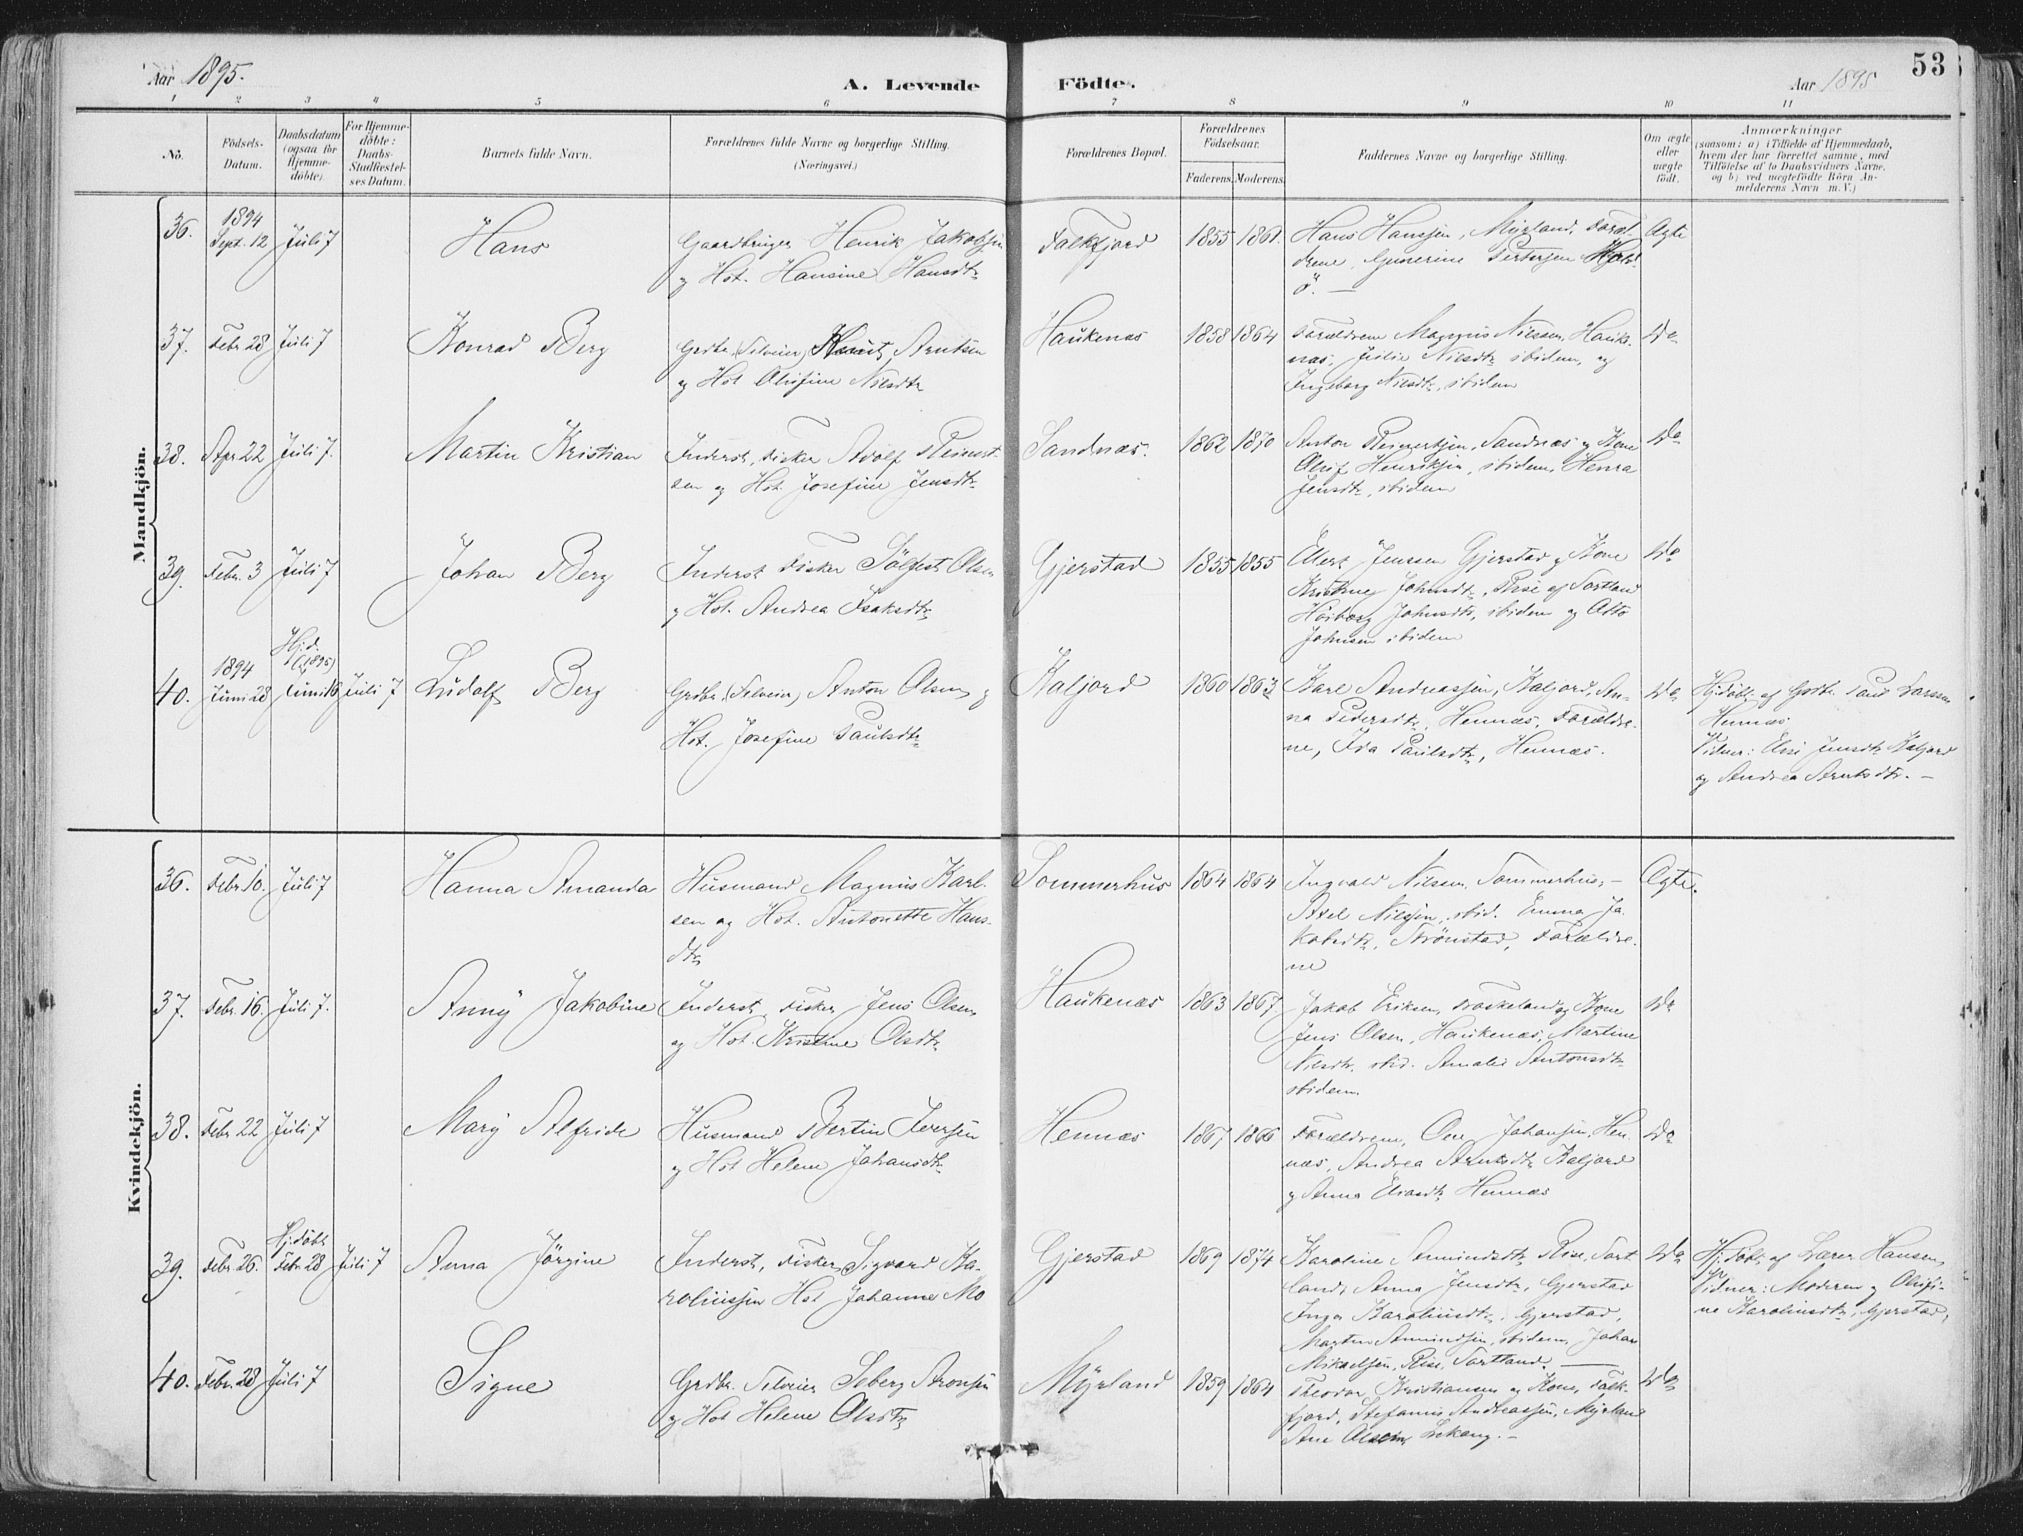 Aar 1895.
A. Levende
Födte.
Aar 1895
53
1 2 3 4 5 6 7 8 9 10 11
No.
Födsels-
Datum.
Daabsdatum
(ogsaa for
Hjemme-
döbte).
For Hjemme-
döbte:
Daabs-
Stadfæstel-
ses Datum.
Barnets fulde Navn.
Forældrenes fulde Navne og borgerlige Stilling.
(Næringsvei.)
Forældrenes Bopæl.
Forældrenes
Födselsaar.
Faderens. Moderens.
Faddernes Navne og borgerlige Stilling.
Om ægte
eller
uægte
födt.
Anmærkninger
(saasom: a) i Tilfælde af Hjemmedaab,
hvem der har forrettet samme, med
Tilföielse af to Daabsvidners Navne,
og b) ved uægtefödte Börn An-
melderens Navn m. V.)
Mandkjön.
36.
1894
Sept. 12
Juli 7
Hans
Gaardbruger Henrik Jakobsen
og Hst. Hansine Hansdtr
Falkfjord
1855 1861.
Hans Hanssen, Myrland, Foræl-
drene, Gunerine Pedersen
ö. —
Ægte
37.
Febr 28
Juli 7
Konrad Berg
Grdbr. (Selveier) Knut Arntsen
og Hst Olufine Nilsdtr
Haukenæs
1858 1864
Forældrene Magnus Nilsen, Hauke-
næs, Julie Nilsdtr ibidem, og
Ingeborg Nilsdtr, ibidem
Do
38.
Apr 22
Juli 7.
Martin Kristian
Inderst, Fisker Adolf Reinert-
sen og Hst. Josefine Jensdtr
Sandnæs.
1862 1870
Anton Reinertsen, Sandnæs og Kone
Oluf Henriksen, ibidem, Henra
Jensdtr, ibidem
Do
39.
Febr. 3
Juli 7
Johan Berg
Inderst Fisker Sölfest Olsen
og Hst. Andrea Isaksdtr
Gjerstad
1855 1855
Elert Jenssen Gjerstad og Kone
Kristine Johnsdtr, Rise af Sortland
Johnsdtr, ibidem og Otto
Johnsen ibidem
Do
40.
1894
Juni 28
Hjd.
(1895)
Juni 16
Juli 7
Ludolf Berg
Grdbr. (Selveier) Anton Olsen og
Hst. Josefine Paulsdtr
Kaljord
1860 1863
Karl Andreassen, Kaljord, An-
na Pedersdtr, Hennæs, Forældre-
ne, Ida Paulsdtr, Hennæs.
Do
Hj.döbt af Grdbr. Paul Larssen
Hennæs
Vidner: Elise Jensdtr Kaljord
og Andrea Arntsdtr. —
Kvindekjön.
36.
Febr 10.
Juli 7
Hanna Amanda
Husmand Magnus Karl-
sen og Hst. Antonette Hans-
dtr
Sommerhus
1864 1864
Ingvald Nilsen, Sommerhus, —
Axel Nilssen, ibid. Emma Ja-
kobsdtr, Strönstad, Forældre-
ne
Ægte.
37.
Febr. 16.
Juli 7.
Anny Jakobine
Inderst, Fisker Jens Olsen
og Hst. Kristine Olsdtr
Haukenæs
1863 1867.
Jakob Eriksen, og Kone
Jens Olsen, Haukenæs, Martine
Nilsdtr. ibid. Amalie Antonsdtr
ibidem.
Do
38.
Febr 22
Juli 7
Mary Alfride
Husmand Bertin Iversen
og Hst Helene Johansdtr
Hennæs
1867 1866
Forældrene, Ove Johansen, Hen-
næs, Andrea Arntsdtr Kaljord
og Anna Eliasdtr Hennæs
Do
39.
Febr 26.
Hj.döbt
Febr 28
Juli 7
Anna Jörgine
Inderst, Fisker Sigvard Ka-
roliussen Hst Johanne Mo
Gjerstad
1869 1874
Karoline Amundsdtr, Rise, Sort
land, Anna Jensdtr, Gjerstad
Inga Karoliusdtr, Gjerstad,
Martin Amundsen, ibidem, Johan
Mikaelsen, Rise, Sortland. —
Do
Hj.döbt af Lærer Hansen,
Vidner: Moderen og Olufi-
ne Karoliusdtr, Gjerstad,
40.
Febr. 28
Juli 7
Signe
Grdbr. Selveier Seberg Aronsen
og Hst Helene Olsdtr
Myrland
1859 1864
Theodor Kristiansen og Kone, Falk-
fjord, Stefanus Andreassen, Myrland
Ane Olsen, Lekang. —
Do